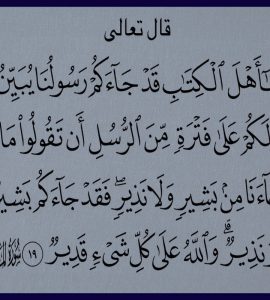 قال تعالى
يَٰٓأَهْلَ ٱلْكِتَٰبِ قَدْ جَآءَكُمْ رَسُولُنَا يُبَيِّنُ
لَكُمْ عَلَىٰ فَتْرَةٍ مِّنَ ٱلرُّسُلِ أَن تَقُولُوا۟ مَا
جَآءَنَا مِنۢ بَشِيرٍ وَلَا نَذِيرٍ ۖ فَقَدْ جَآءَكُم بَشِيرٌ
وَنَذِيرٌ ۗ وَٱللَّهُ عَلَىٰ كُلِّ شَىْءٍ قَدِيرٌ ١٩